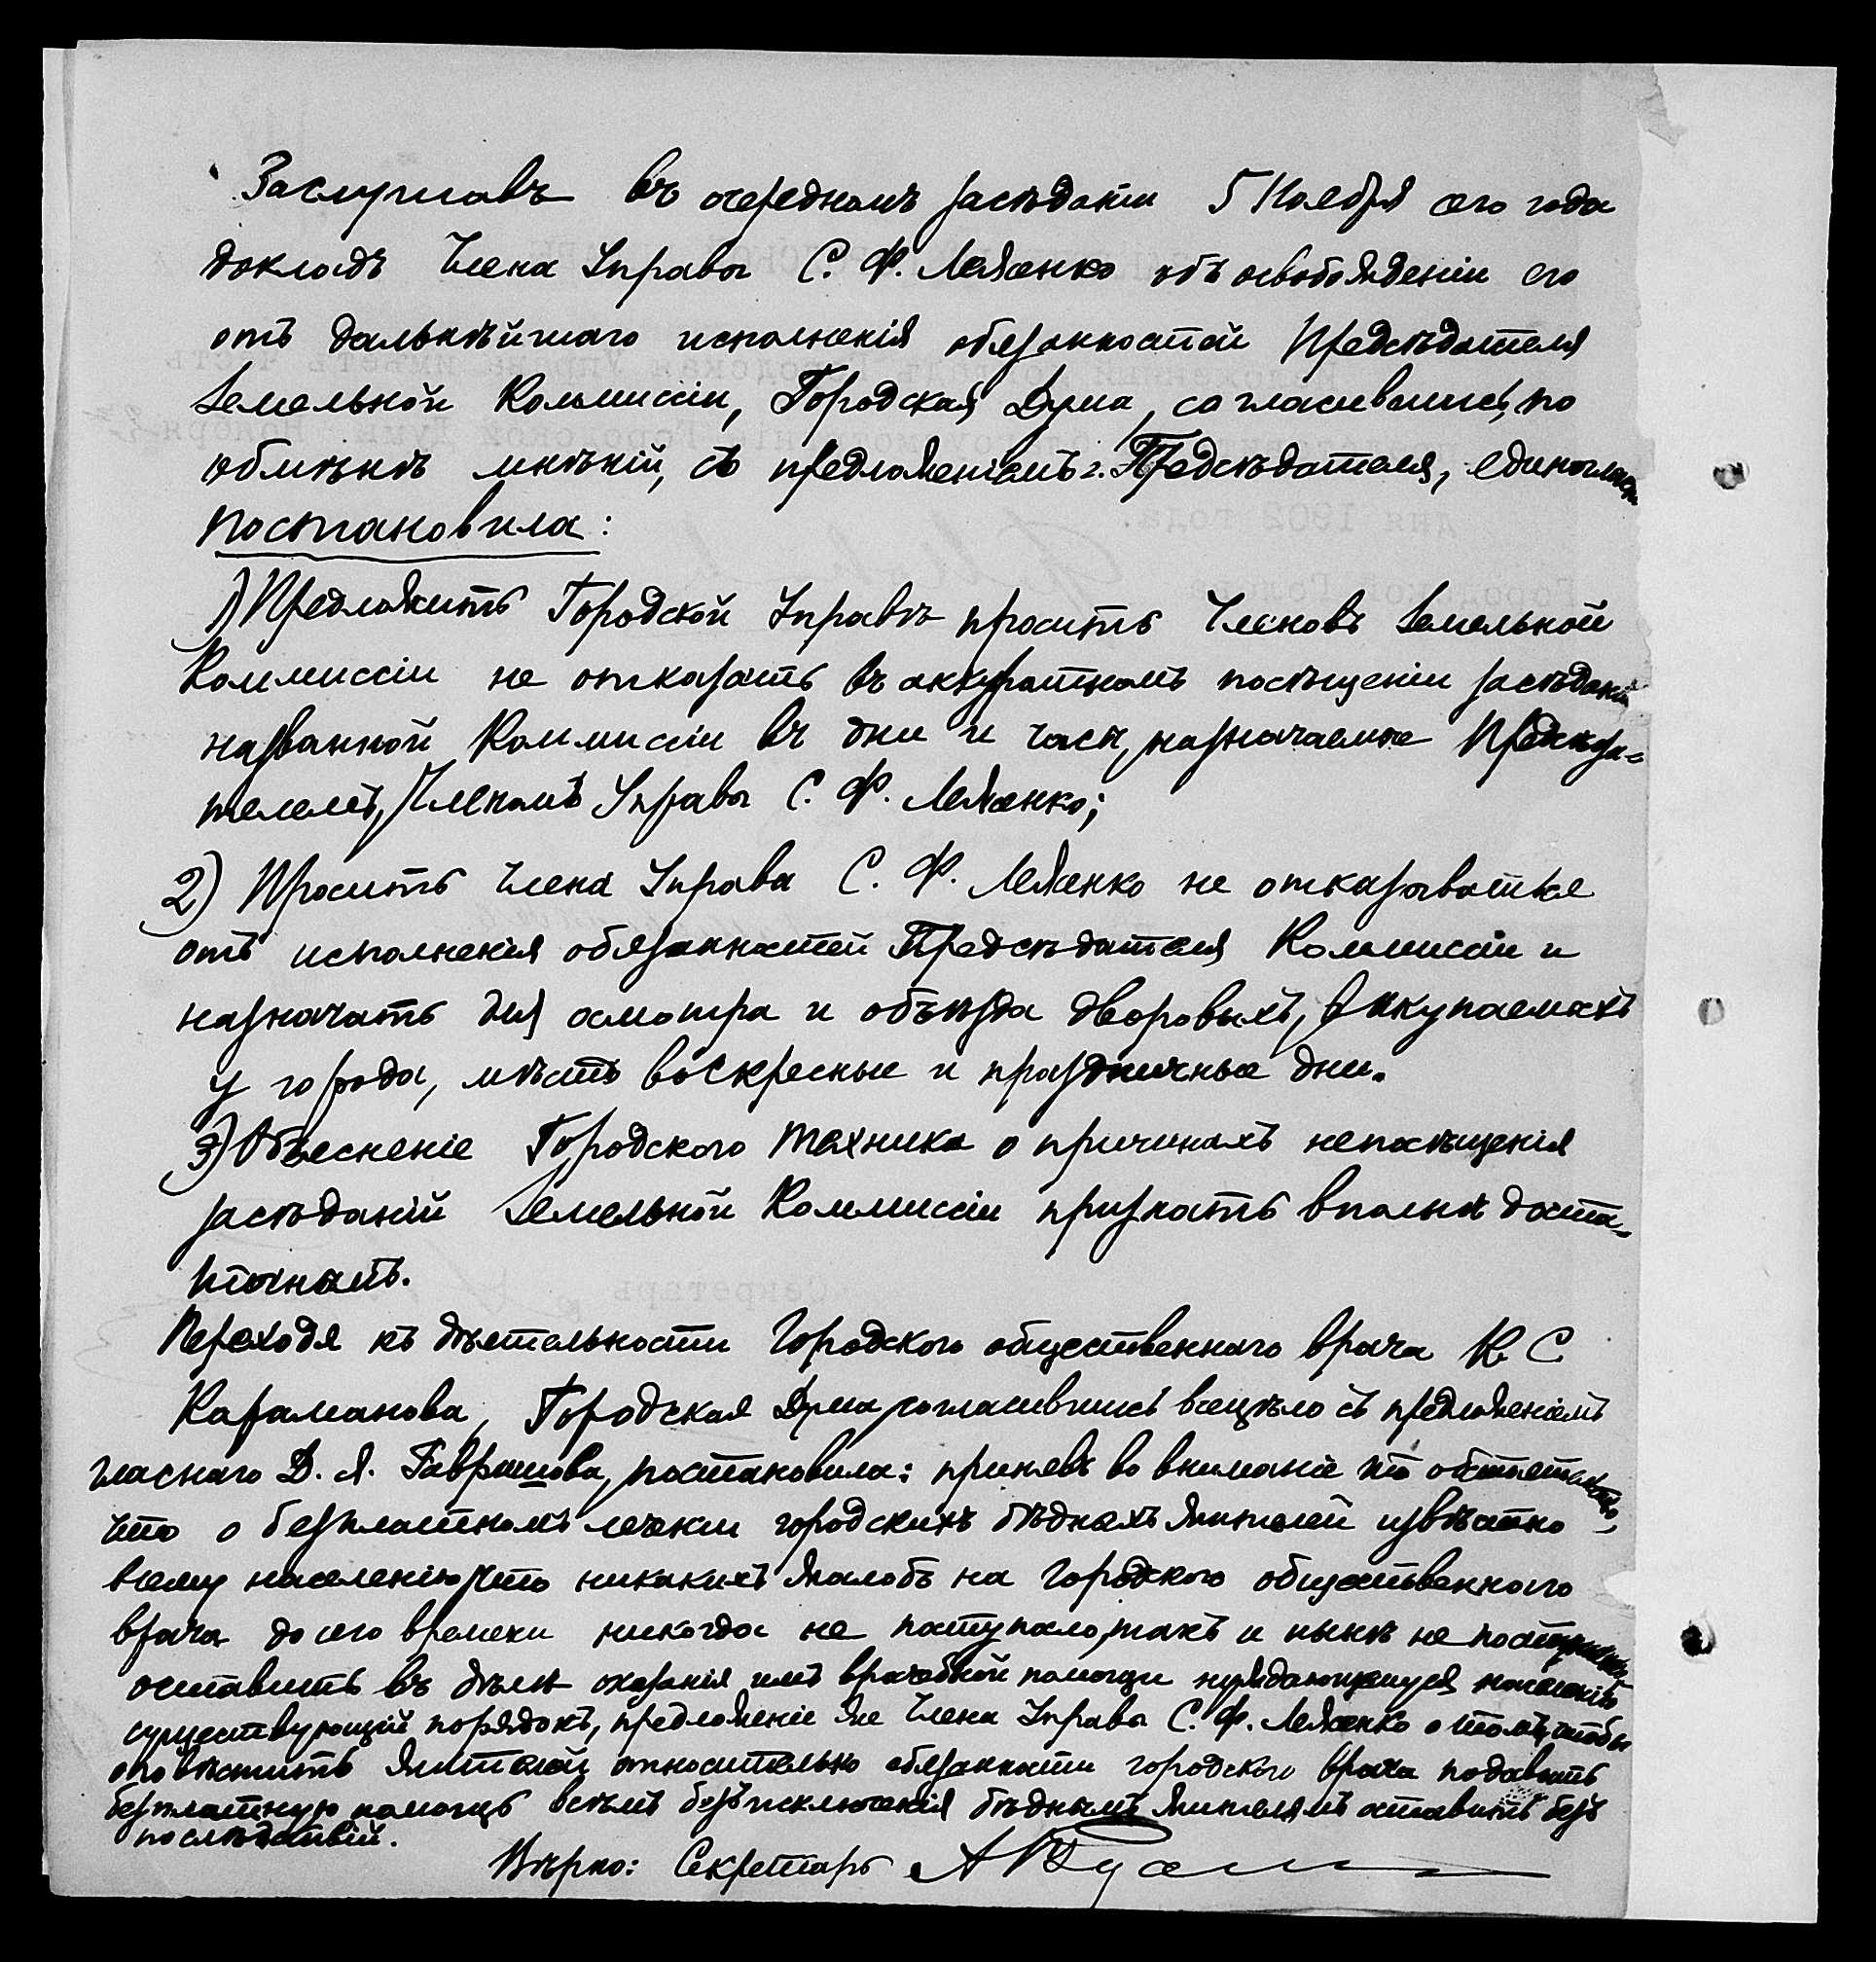 Заслушавъ въ очередномъ засѣданіи 5 Ноября сего года
докладъ Члена Управы С. Ф. Леженко объ освобожденіи его
отъ дальнѣйшаго исполненія обязанностей Предсѣдателя
Земельной Коммиссіи, Городская Дума, согласившись, по
обмѣнѣ мнѣній, съ предложеніемъ г. Предсѣдателя, единогласно
постановила:
1) Предложить Городской Управѣ просить Членовъ Земельной
Коммиссіи не отказать въ аккуратномъ посѣщеніи засѣданій
названной Коммиссіи въ дни и часы, назначаемые Предсѣда-
телемъ, Членомъ Управы С. Ф. Леженко;
2) Просить Члена Управы С. Ф. Леженко не отказываться
отъ исполненія обязанностей Предсѣдателя Коммиссіи и
назначать для осмотра и объѣзда дворовыхъ, выкупаемыхъ
у города, мѣстъ воскресные и праздничные дни.
3) Объясненіе Городского техника о причинахъ непосѣщенія
засѣданій Земельной Коммиссіи признать вполнѣ доста-
точнымъ.
Переходя къ дѣятельности Городского общественнаго врача К. С.
Караманова, Городская Дума, согласившись всецѣло съ предложеніемъ
гласнаго Д. Я. Гаврашова, постановила: принявъ во вниманіе то обстоятельство,
что о безплатномъ леченіи городскихъ бѣдныхъ жителей извѣстно
всему населенію, что никакихъ жалобъ на Городского общественнаго
врача до сего времени никогда не поступало, такъ и нынѣ не поступило
оставить въ дѣлѣ оказанія имъ врачебной помощи нуждающемуся населенію
существующій порядокъ, предложеніе же Члена Управы С. Ф. Леженко о томъ, чтобы
оповѣстить жителей относительно обязанности городского врача подавать
безплатную помощь всѣмъ безъ исключенія бѣднымъ жителямъ оставить безъ
послѣдствій.
Вѣрно: Секретарь